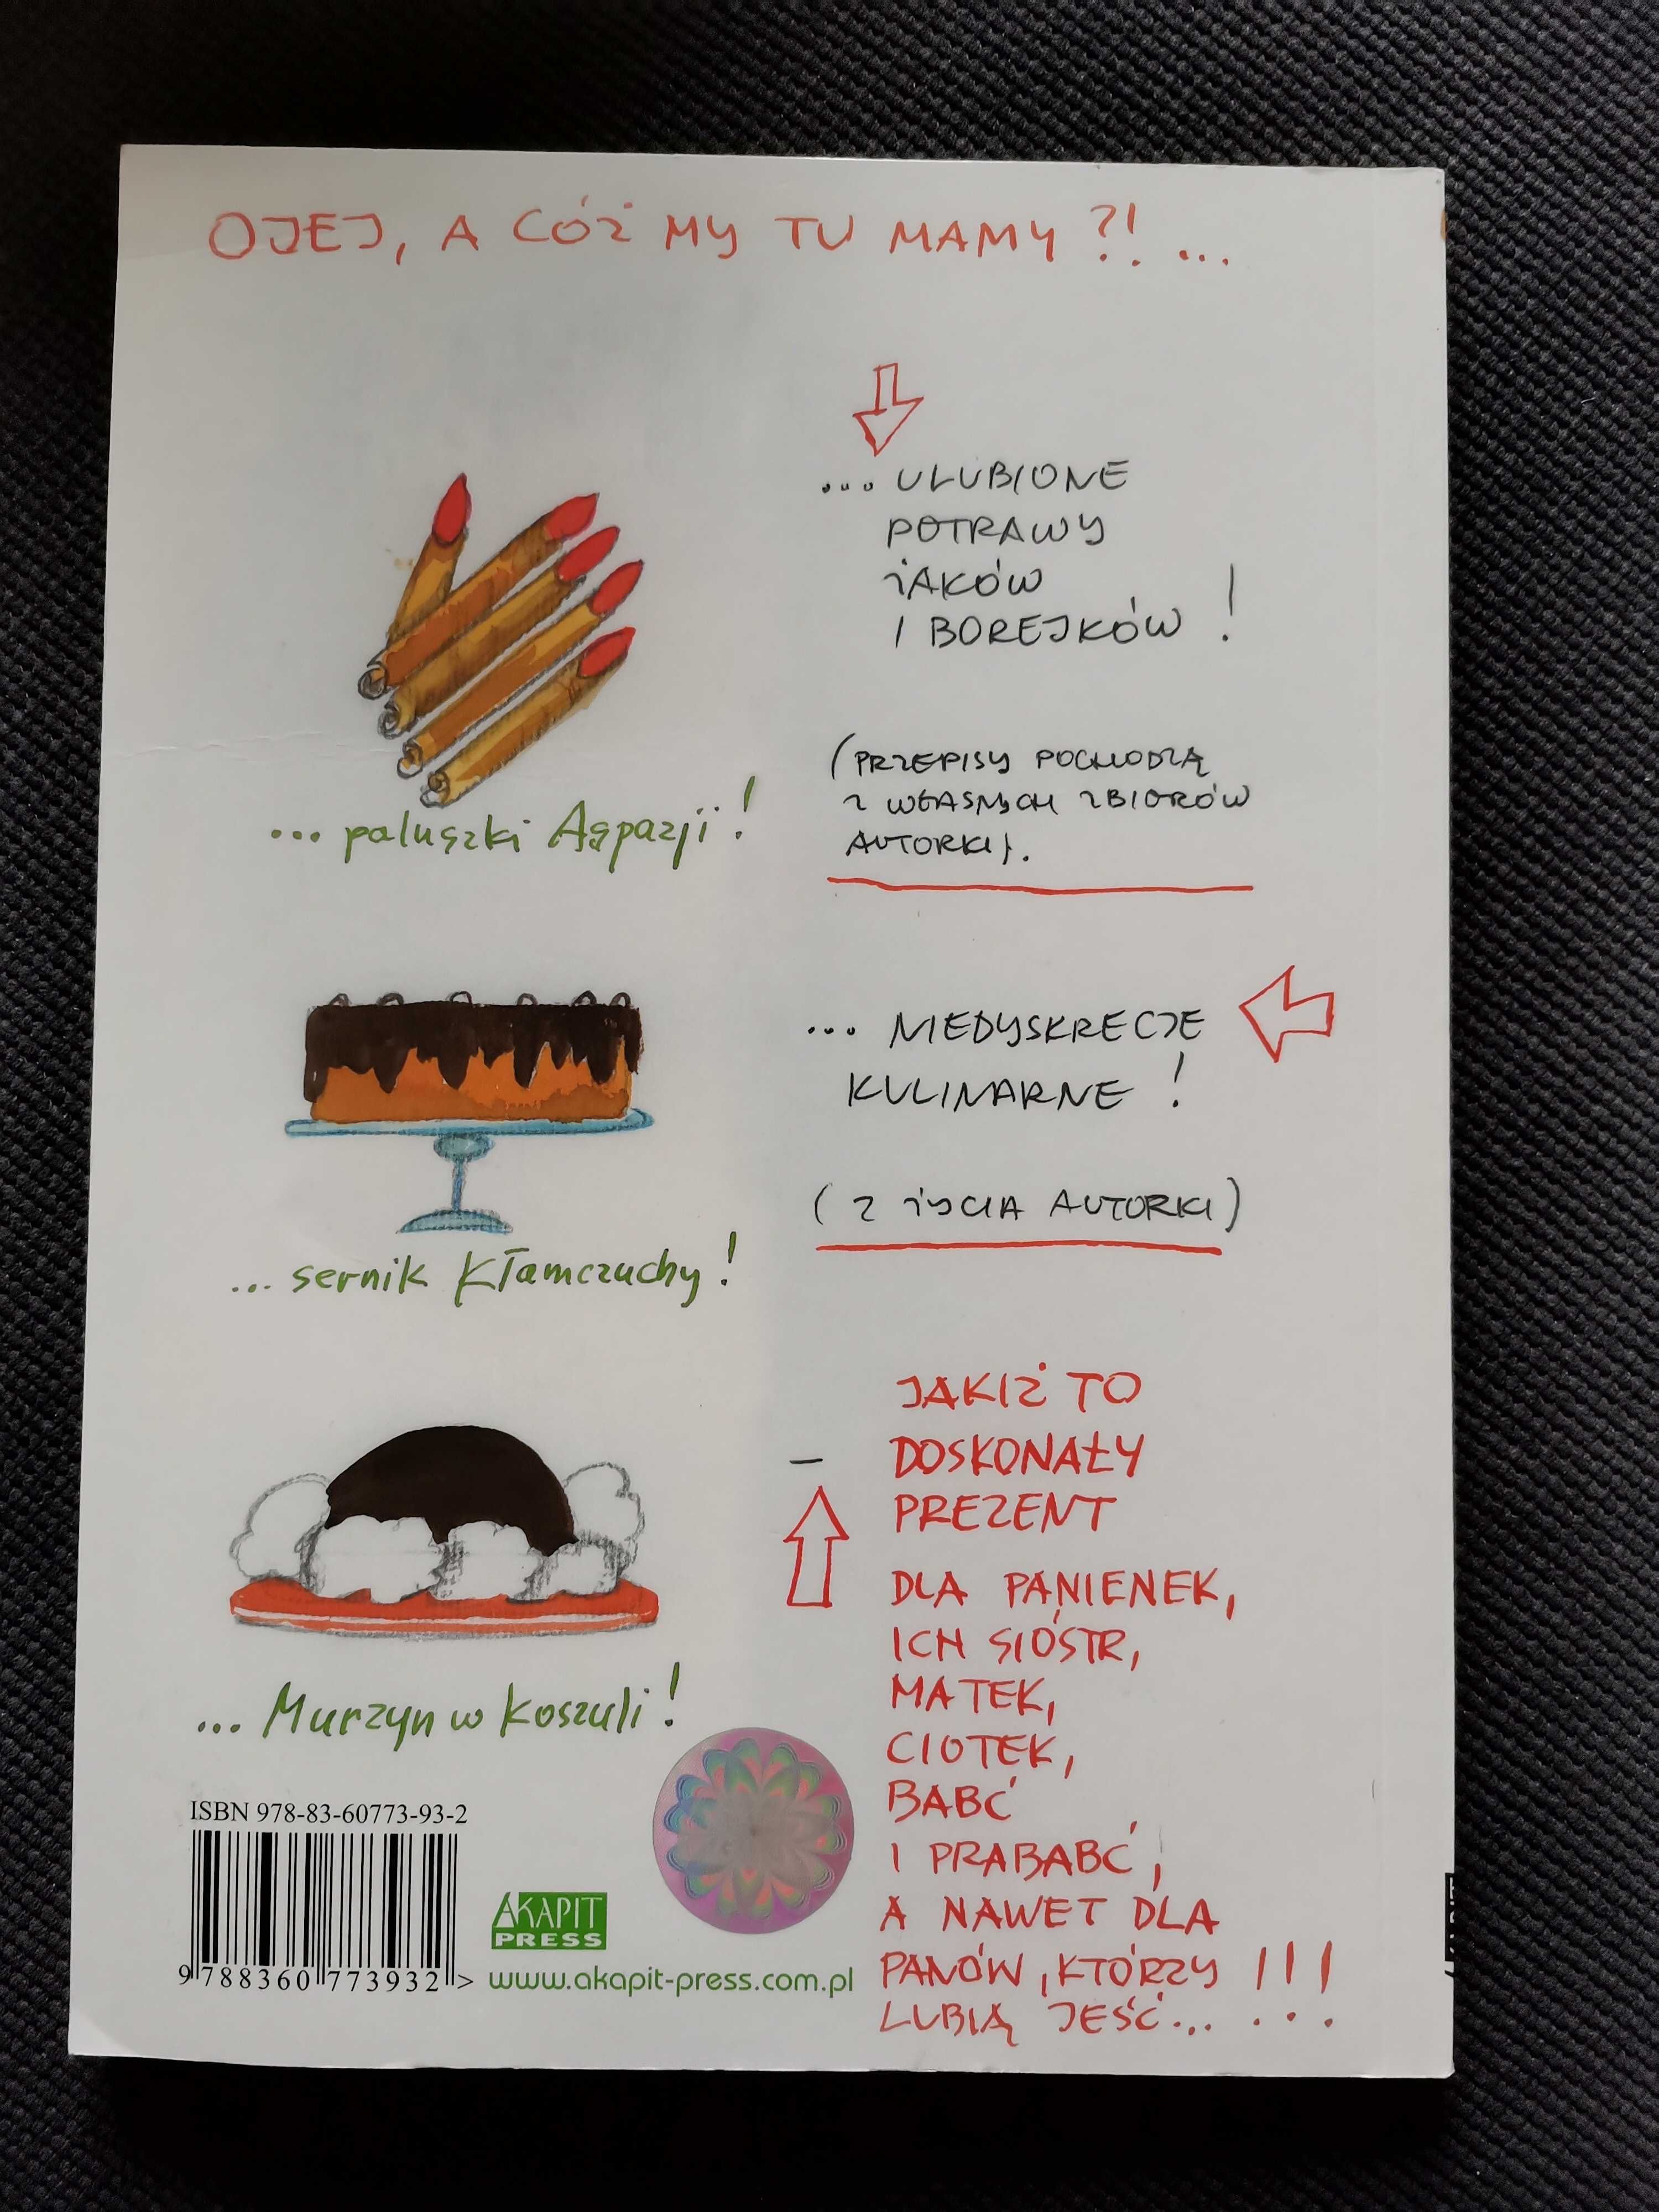 OJEJ, A CÓŻ MY TU MAMY ?! ...
... ULUBIONE
POTRAWY
ŻAKÓW
I BOREJKÓW !
(PRZEPISY POCHODZĄ
Z WŁASNYCH ZBIORÓW
AUTORKI).
... paluszki Aspazji !
... NIEDYSKRECJE
KULINARNE !
(Z ŻYCIA AUTORKI)
... sernik Kłamczuchy !
JAKIŻ TO
– DOSKONAŁY
PREZENT
DLA PANIENEK,
ICH SIÓSTR,
MATEK,
CIOTEK,
BABĆ
I PRABABĆ,
A NAWET DLA
PANÓW, KTÓRZY
LUBIĄ JEŚĆ... !!!
... Murzyn w koszuli !
ISBN 978-83-60773-93-2
9 788360 773932 >
AKAPIT
PRESS
www.akapit-press.com.pl